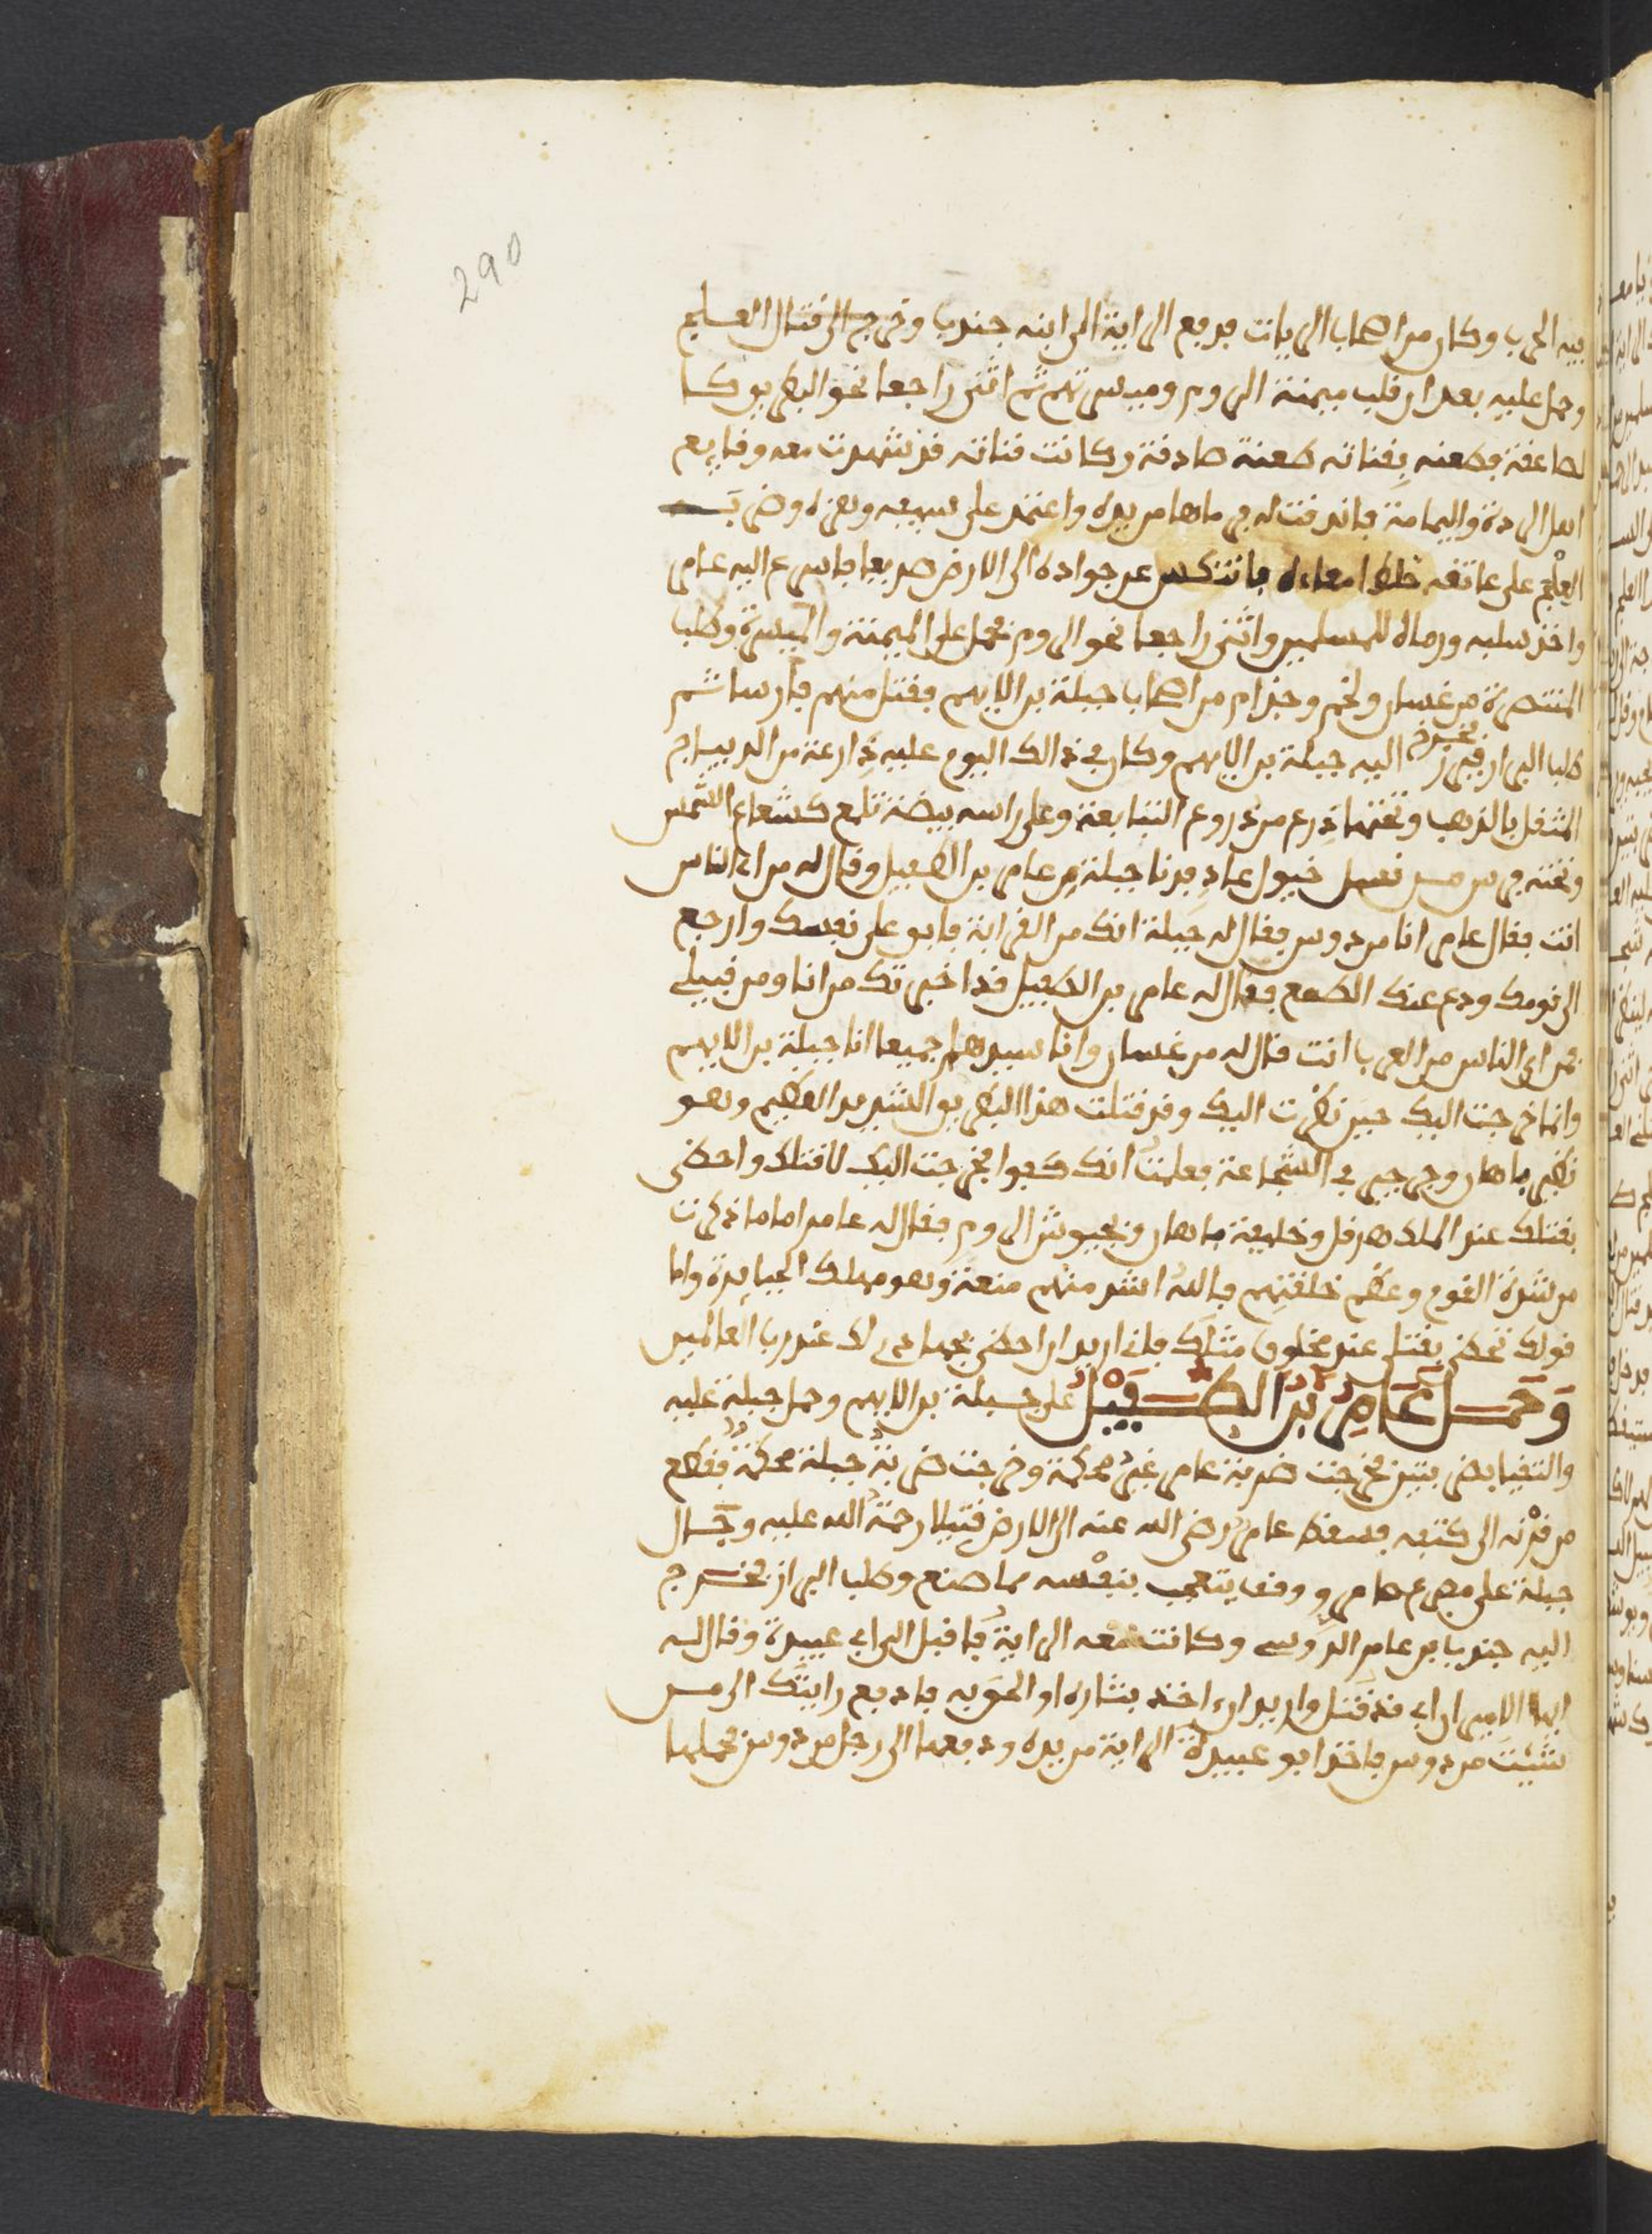 290
فيه الحرب وكان من اصحاب الرايات فدفع الراية الى ابنه جندب وخرج الى قتال العلج
وحمل عليه بعد ان قلب ميمنة الروم وميسرتهم ثم انثنى راجعا نحو البطريو كا
لصاعقة فطعنه بقناته طعنة صادقة وكانت قناته قد شهدت معه وقايع
اهل الردة واليمامة فاندقت له في ماهامر يده واعتمد على سيفه وهزه وضرب
العلج على عاتقه خلط امعاءه فانتكس عن جواده الى الارض صريعا فاسرع اليه عامر
واخذ سلبه ورماه للمسلمين وانثنى راجعا نحو الروم فحمل على الميمنة والميسرة وطلب
المتنصرة من غسان ولخم وجذام من اصحاب جبلة بن الايهم فقتل منهم فارسا ثم
طلب البراز فبرز فخرج اليه جبلة بن الايهم وكان في ذالك اليوم عليه دارعة من الديباج
المثقل بالذهب وتحتها درع من دروع التبابعة وعلى راسه بيضة تلمع كشعاع الشمس
وتحته فرس من نسل خيول عاد فدنا جبلة من عامر بن الطفيل وقال له من اي الناس
انت فقال عامر انا من دوس فقال له جبلة انك من القرابة فابق على نفسك وارجع
الى قومك ودع عنك الطمع فقال له عامر بن الطفيل قد اخبرتك من انا ومن قبيلي
فمن اي الناس من العرب انت قال له من غسان وانا سيدهم جميعا انا جبلة بن الايهم
وانما خرجت اليك حين نظرت اليك وقد قتلت هذا البطريو الشديد العظيم وهو
نظير ماهان وجرجير في الشجاعة فعلمت انك كفوا فخرجت اليك لاقتلك واحظى
بقتلك عند الملك هرقل وخليفة ماهان وجيوش الروم فقال له عامر اما ما ذكرت
من شدة القوم وعظم خلقتهم فالله اشد منهم منعة وهو مهلك الجبابرة واما
قولك تحظى بقتلي عند مخلوق مثلك فاني اريد ان احظى بجهادي لك عند رب العالمين
وَحَمَلَ عَامِرُ بْنُ الطُّفَيْلِ على جبلة بن الايهم وحمل جبلة عليه
والتقيا بضربتين فخرجت ضربة عامر غير محكمة وخرجت ضربة جبلة محكمة فقطع
من قرنه الى كتفه فسقط عامر رضي الله عنه الى الارض قتيلا رحمة الله عليه وجال
جبلة على مصرع عامر ووقف يتعجب بنفسه مما صنع وطلب البراز فخرج
اليه جندب بن عامر الدوسي وكانت معه الراية فاقبل الى ابي عبيدة وقال له
ايها الامير ان ابي قد قتل واريد ان اخذ بثاره او الحق به فادفع رايتك الى من
شئت من دوس فاخذ ابو عبيدة الراية من يده ودفعها الى رجل من دوس فحملها